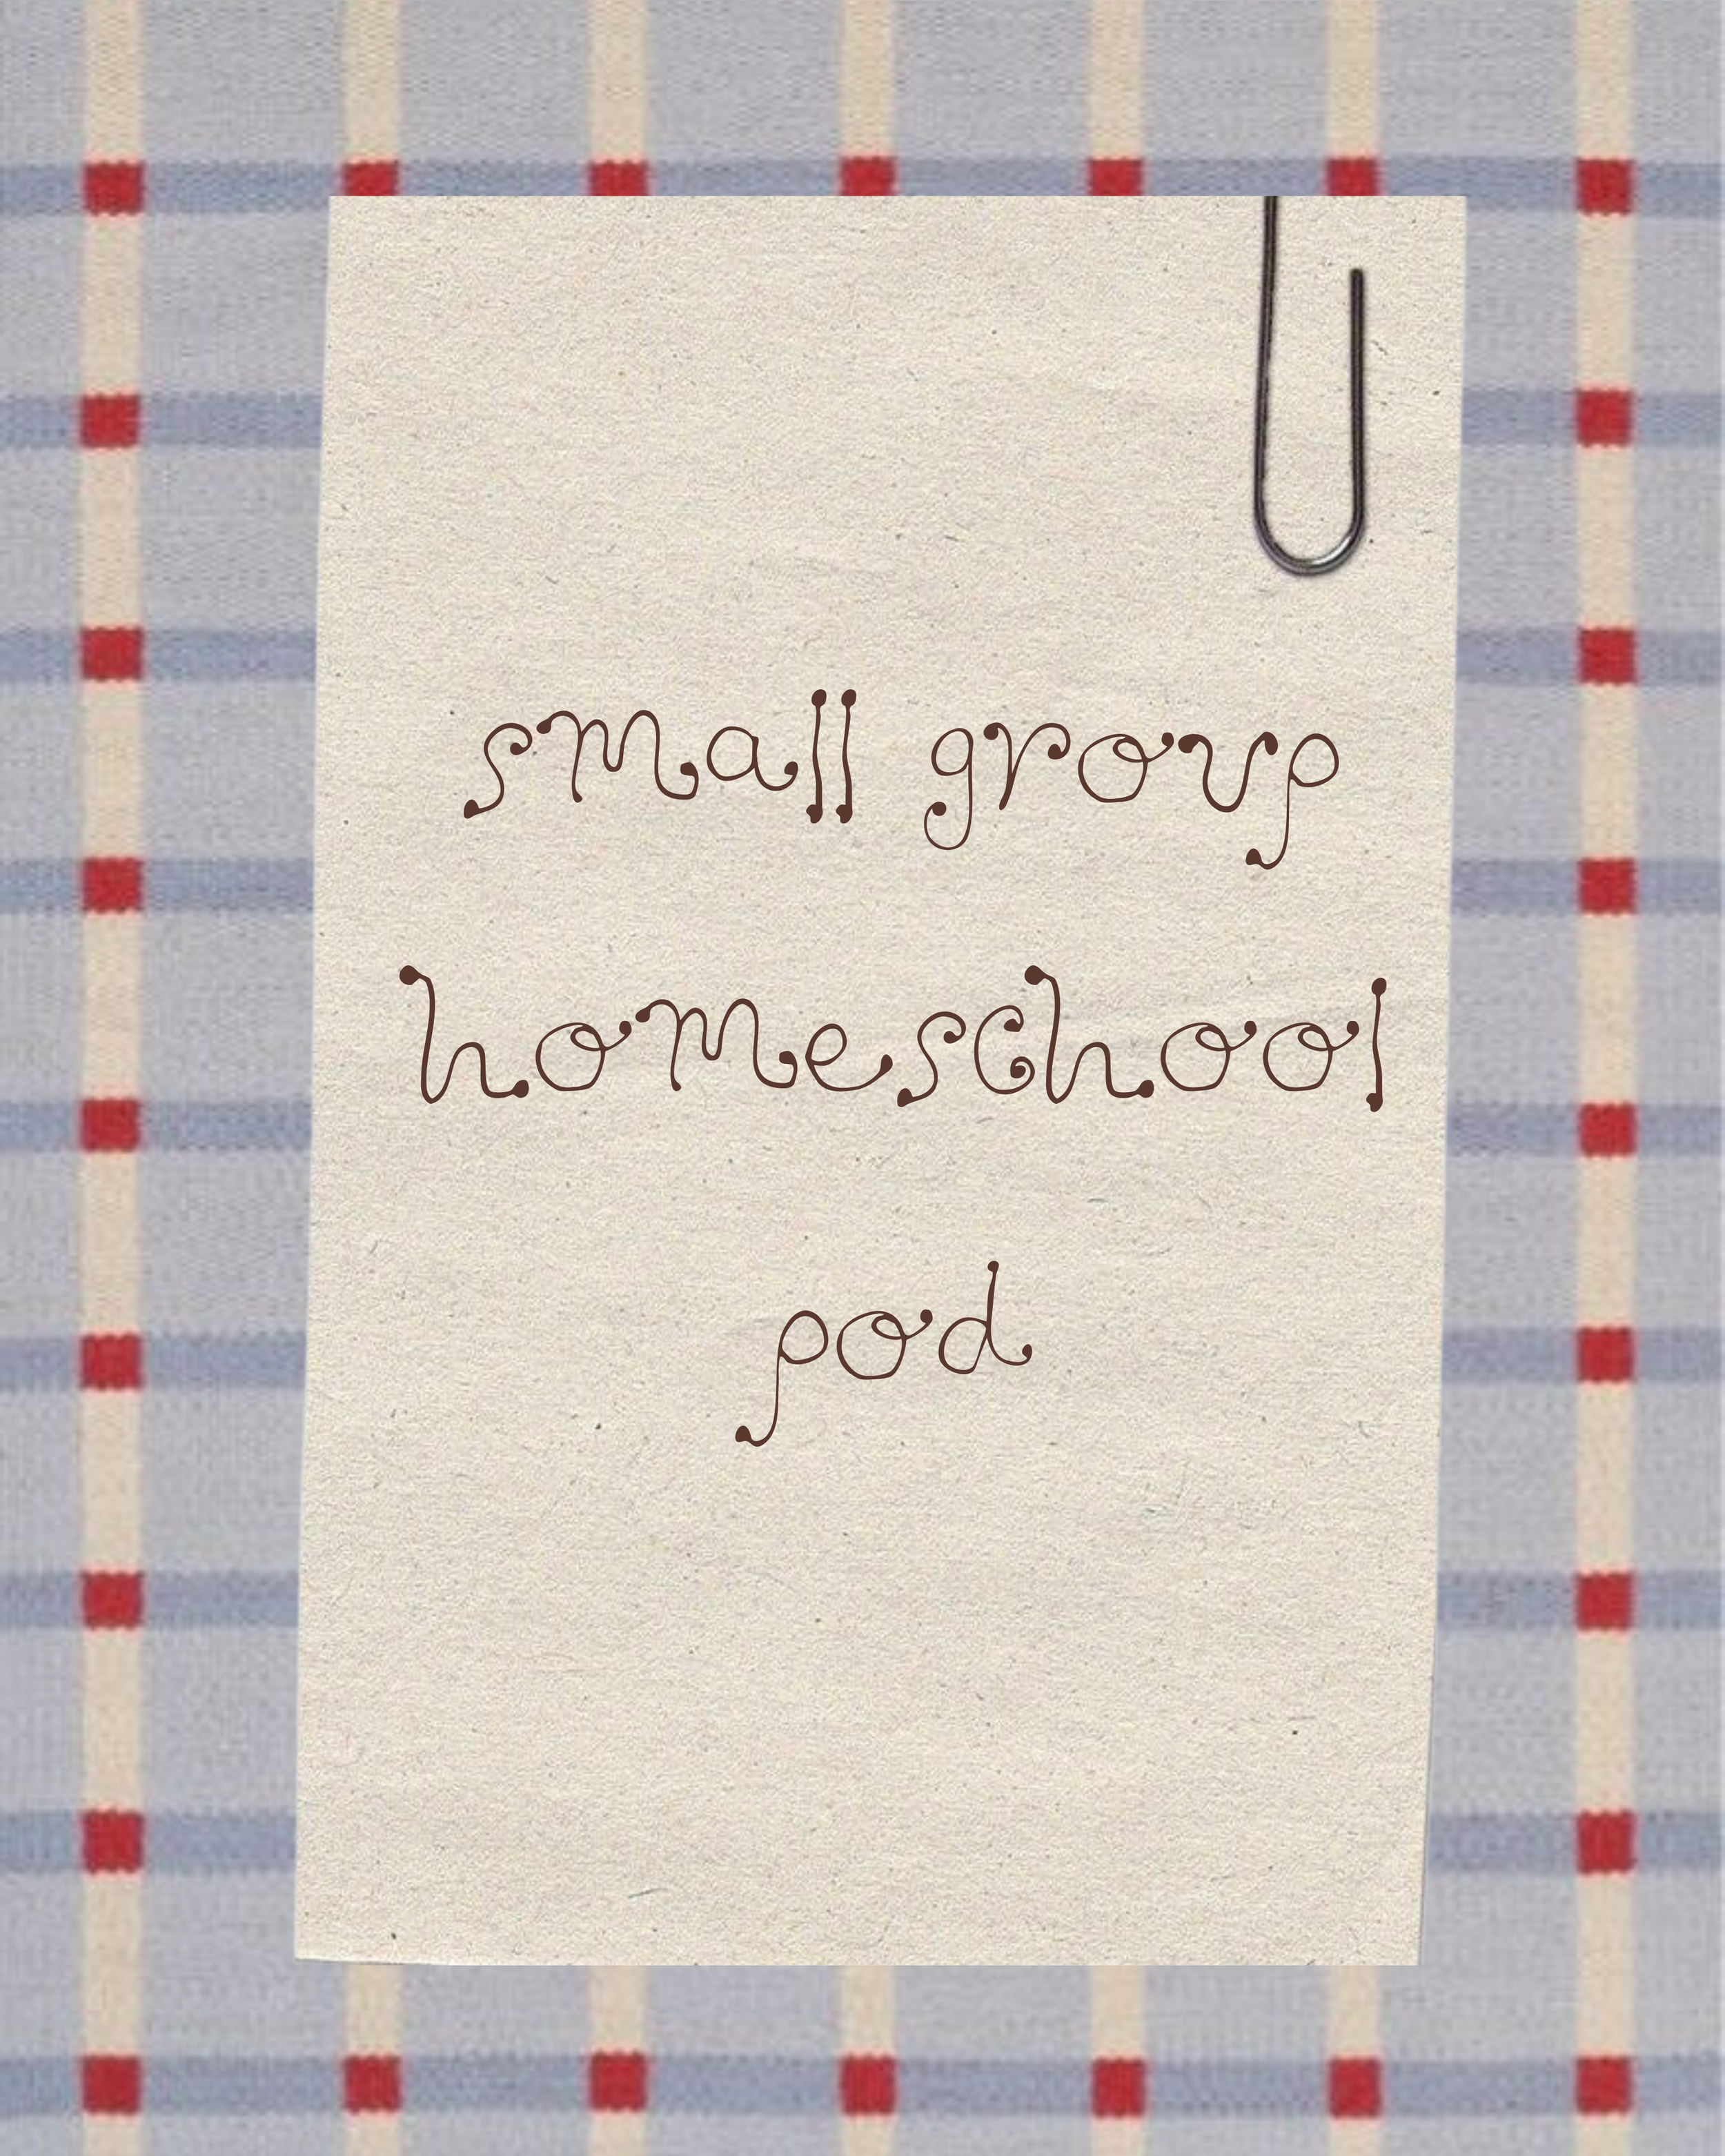 small group
homeschool
pod